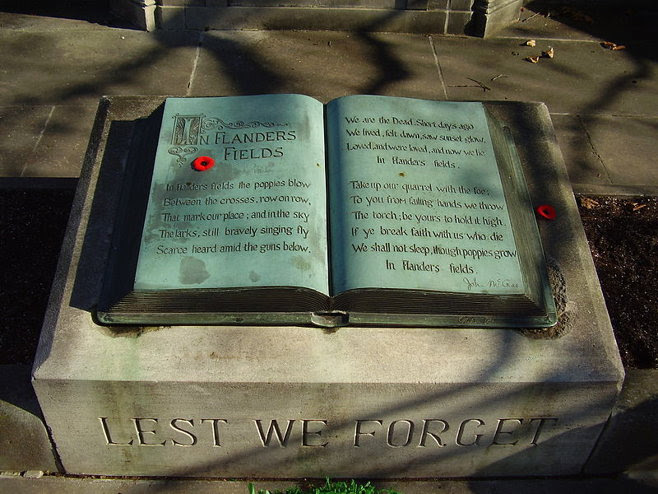 IN FLANDERS
FIELDS
In Flanders fields the poppies blow
Between the crosses, row on row,
That mark our place; and in the sky
The larks, still bravely singing, fly
Scarce heard amid the guns below.
We are the Dead. Short days ago
We lived, felt dawn, saw sunset glow,
Loved, and were loved, and now we lie
In Flanders fields.
Take up our quarrel with the foe;
To you from failing hands we throw
The torch; be yours to hold it high.
If ye break faith with us who die
We shall not sleep, though poppies grow
In Flanders fields.
John McCrae
LEST WE FORGET